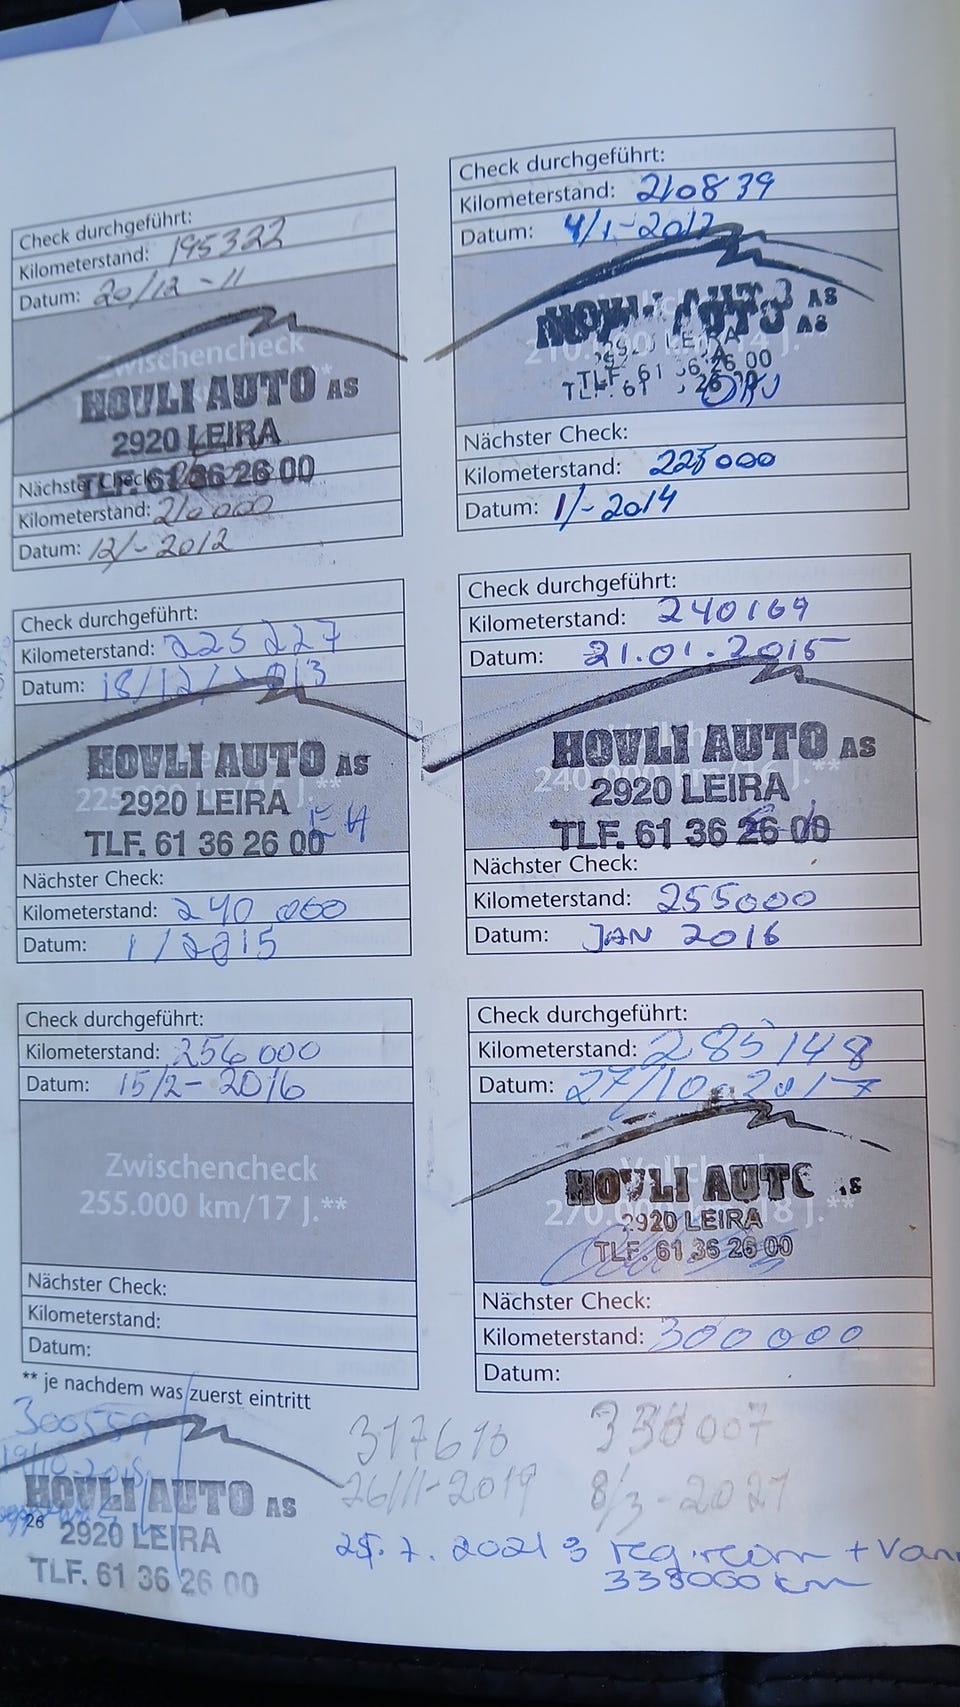 Check durchgeführt:
Kilometerstand: 195322
Datum: 20/12 -11
Zwischencheck
HOVLI AUTO AS
2920 LEIRA
TLF. 61 36 26 00
Nächster Check:
Kilometerstand: 210000
Datum: 12/- 2012
Check durchgeführt:
Kilometerstand: 210839
Datum: 4/1-2013
HOVLI AUTO AS
2920 LEIRA
TLF. 61 36 26 00
Nächster Check:
Kilometerstand: 225000
Datum: 1/- 2014
Check durchgeführt:
Kilometerstand: 225227
Datum: 18/12/2013
HOVLI AUTO AS
2920 LEIRA
TLF. 61 36 26 00
EH
Nächster Check:
Kilometerstand: 240 000
Datum: 1/2015
Check durchgeführt:
Kilometerstand: 240169
Datum: 21.01.2015
HOVLI AUTO AS
240.000 km/16 J.**
2920 LEIRA
TLF. 61 36 26 00
Nächster Check:
Kilometerstand: 255000
Datum: JAN 2016
Check durchgeführt:
Kilometerstand: 256 000
Datum: 15/2- 2016
Zwischencheck
255.000 km/17 J.**
Nächster Check:
Kilometerstand:
Datum:
Check durchgeführt:
Kilometerstand: 285148
Datum: 27/10-2017
Vollcheck
HOVLI AUTO AS
270.000 km/18 J.**
2920 LEIRA
TLF. 61 36 26 00
Nächster Check:
Kilometerstand: 300 000
Datum:
** je nachdem was zuerst eintritt
300559
HOVLI AUTO AS
26
2920 LEIRA
TLF. 61 36 26 00
317610
26/11-2019
338007
8/3-2021
25.7.2021 3 reg.reem + Van
338000 km